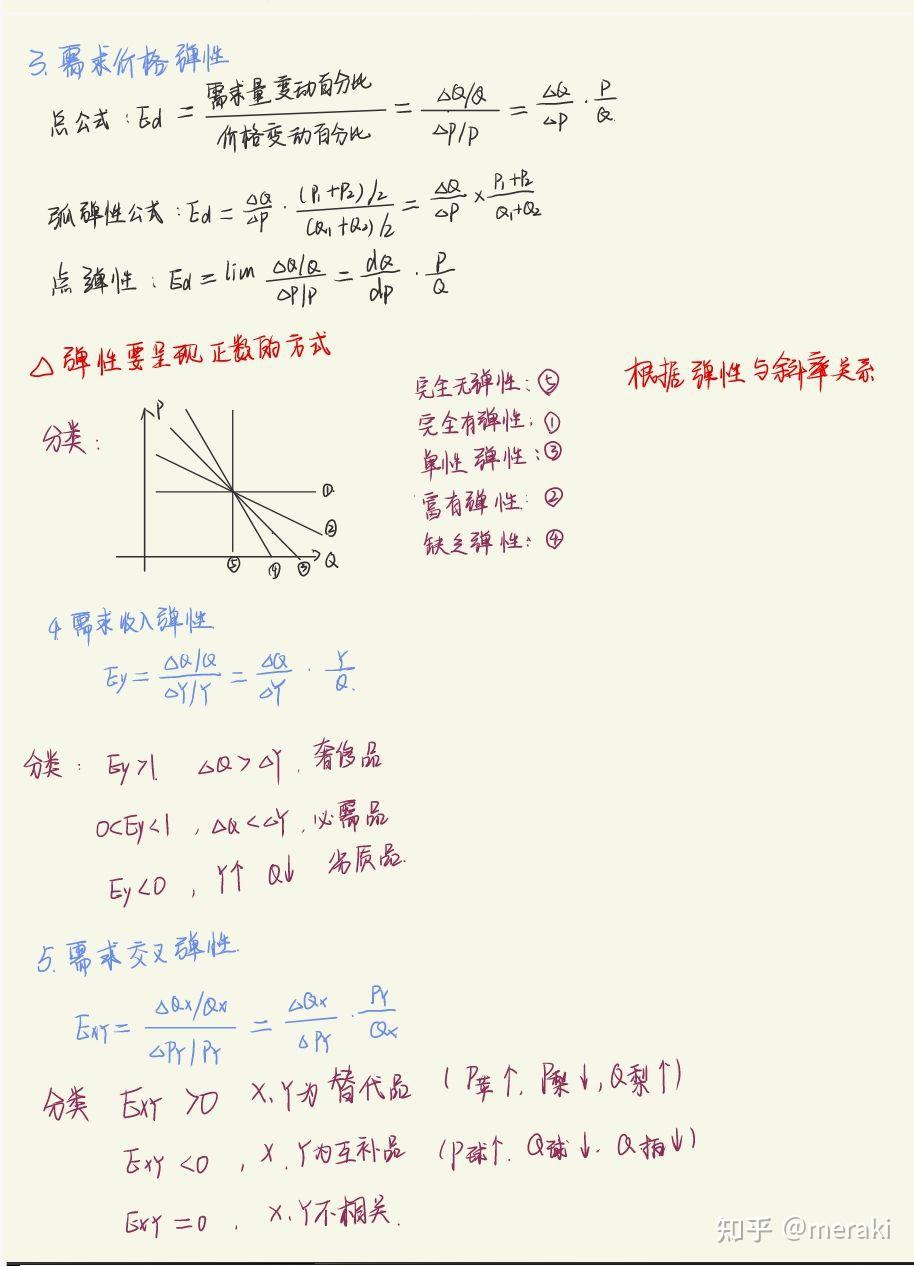 3. 需求价格弹性
点公式: Ed = 需求量变动百分比/价格变动百分比 = (△Q/Q)/(△P/P) = △Q/△P · P/Q
弧弹性公式: Ed = △Q/△P · ((P₁+P₂)/2)/((Q₁+Q₂)/2) = △Q/△P × (P₁+P₂)/(Q₁+Q₂)
点弹性: Ed = lim (△Q/Q)/(△P/P) = dQ/dP · P/Q
△ 弹性要呈现正数的方式
根据弹性与斜率关系
分类:
P
①
②
Q
⑤ ④ ③
完全无弹性: ⑤
完全有弹性: ①
单性弹性: ③
富有弹性: ②
缺乏弹性: ④
4 需求收入弹性
Ey = (△Q/Q)/(△Y/Y) = △Q/△Y · Y/Q
分类: Ey>1. △Q>△Y. 奢侈品
0<Ey<1, △Q<△Y, 必需品
Ey<0, Y↑ Q↓ 劣质品.
5. 需求交叉弹性.
EXY = (△QX/QX)/(△PY/PY) = △QX/△PY · PY/QX
分类 EXY >0 X、Y为替代品 (P苹↑. P梨↓, Q梨↑)
EXY <0, X、Y为互补品 (P球↑. Q球↓. Q拍↓)
EXY =0, X、Y不相关.
知乎 @meraki